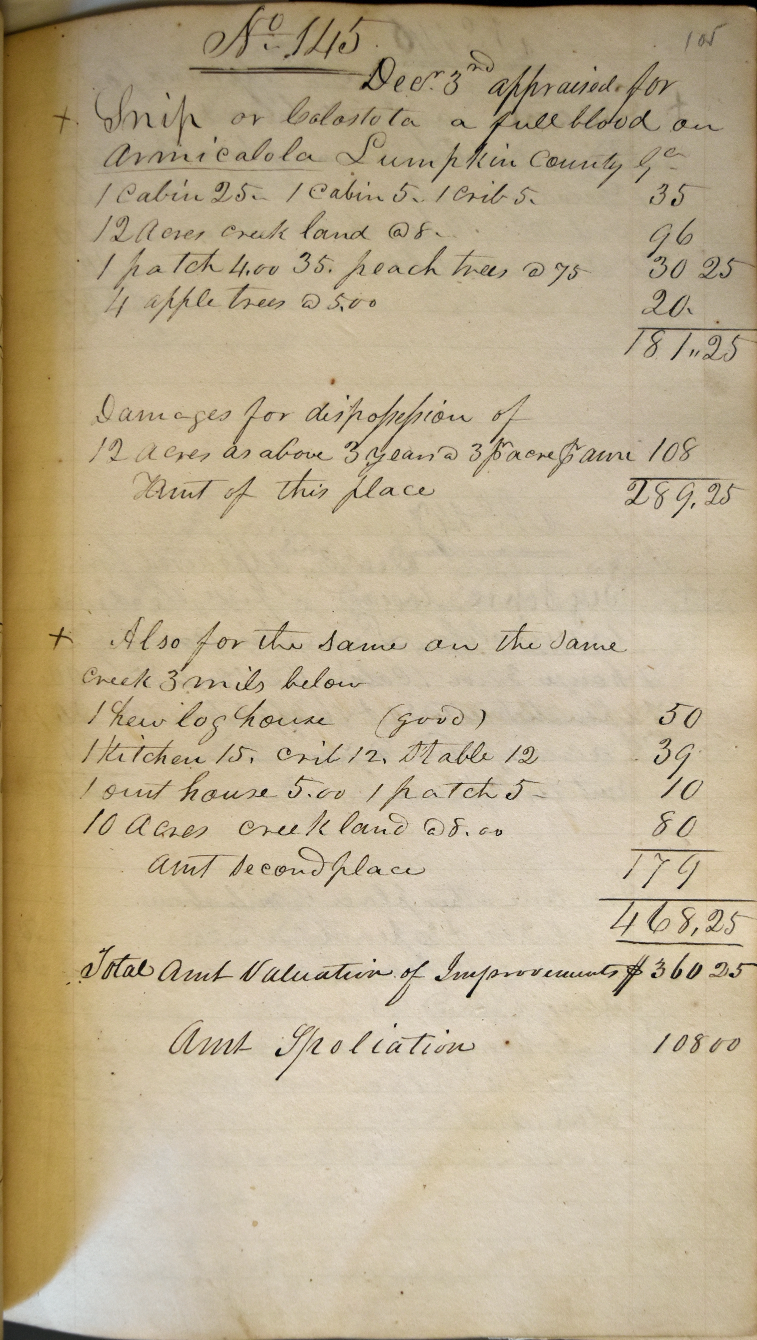 105
No. 145
Decr. 3rd appraised for
+ Snip or Colostota a full blood on
Armicalola Lumpkin County Ga
1 Cabin 25. 1 Cabin 5. 1 crib 5. 35
12 Acres creek land @ 8. 96
1 patch 4.00 35. peach trees @ 75 30 25
4 apple trees @ 5.00 20.
181.,25
Damages for dispossession of
12 acres as above 3 years @ 3 pr acre pr ann 108
Amt of this place 289,25
+ Also for the same on the same
creek 3 mils below
1 hew log house (good) 50
1 Kitchen 15. crib 12. Stable 12 39
1 out house 5.00 1 patch 5 10
10 Acres creek land @ 8.00 80
Amt Second place 179
468,25
Total Amt Valuation of Improvements $ 360 25
Amt Spoliation 108 00